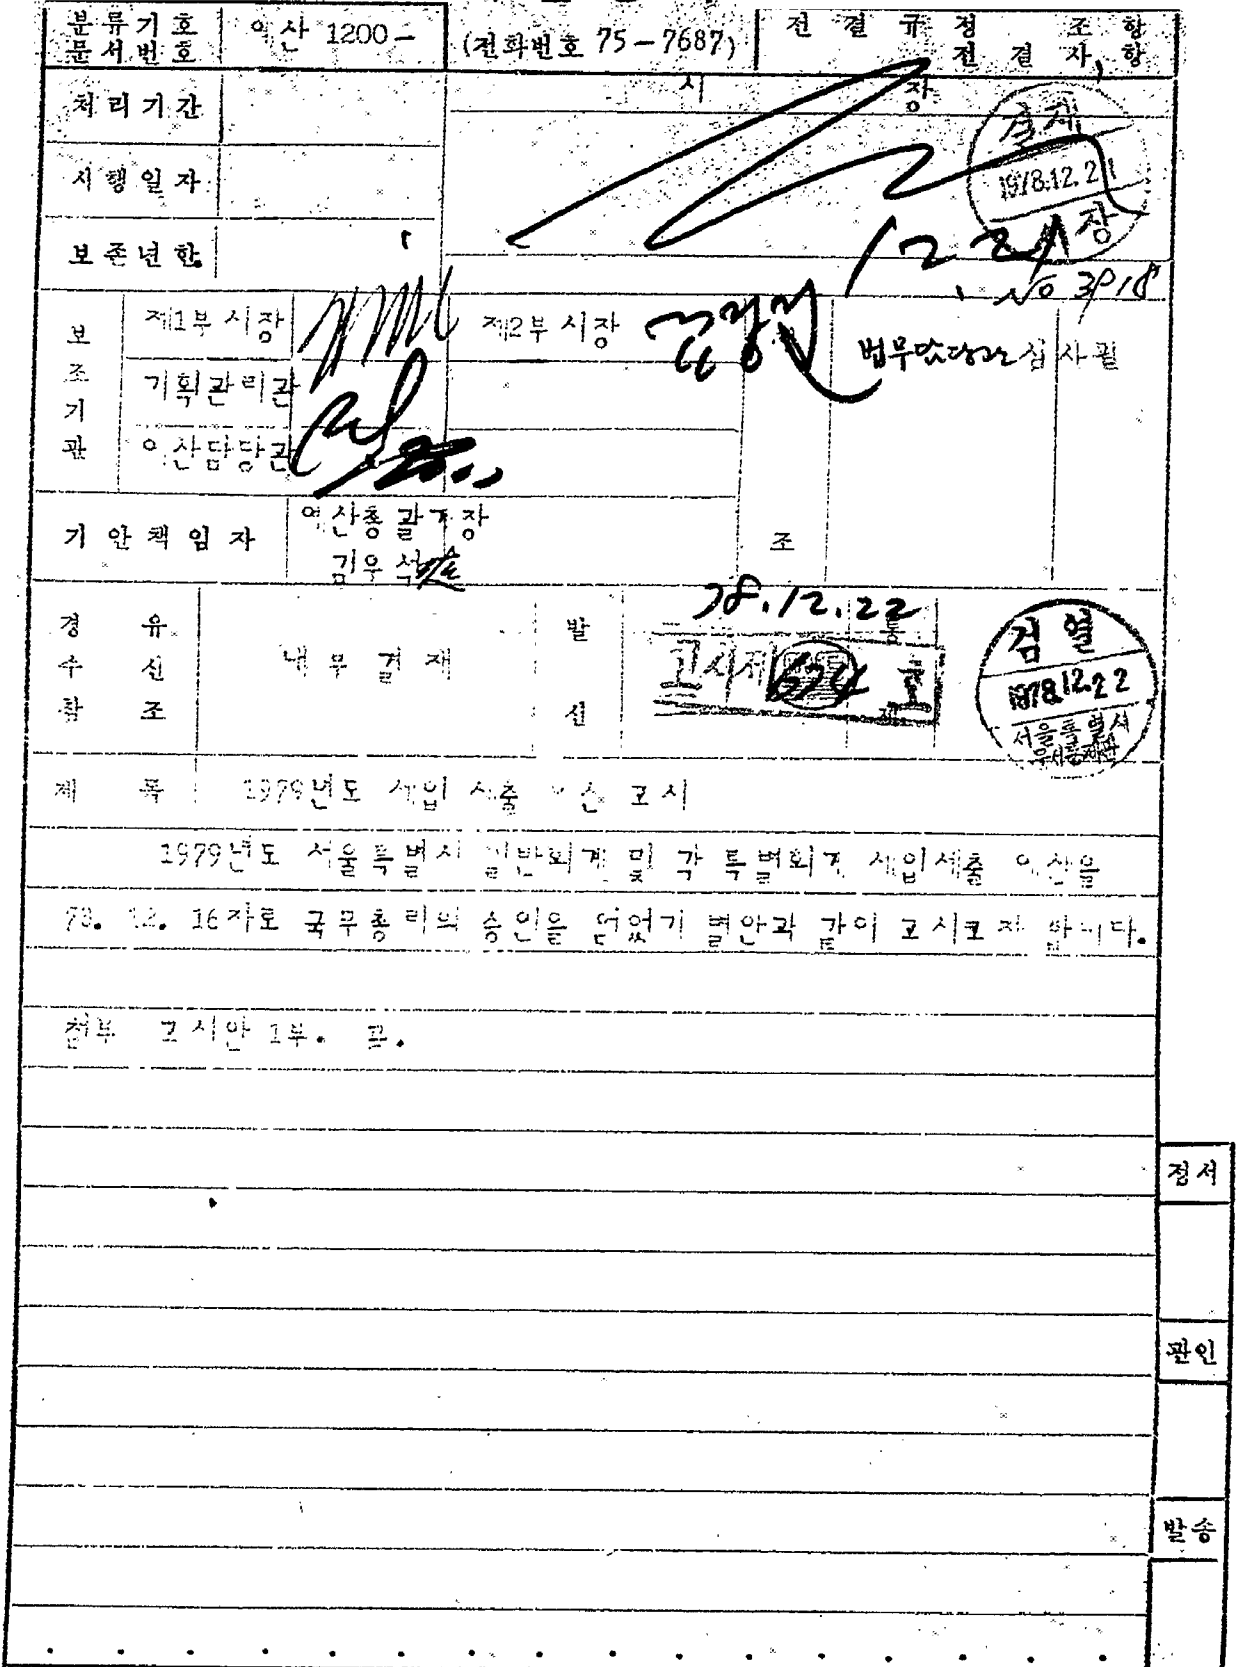 분류기호 문서번호 예산 1200- (전화번호 75-7687) 전결규정 조 항 전결사항
처리기간
시 장
결재
1978.12.21
시장
시행일자
1221
보존년한
No 3918
보조기관
제1부시장
제2부시장
법무담당관 심사필
기획관리관
예산담당관
기안책임자 예산총괄계장
김우석
조
경유
수신
참조
내부결재
발신
78.12.22
통
고시제 674 호
제
검열
1978.12.22
서울특별시
제 목 1979년도 세입 세출 예산 고시
1979년도 서울특별시 일반회계 및 각 특별회계 세입세출 예산을
78. 12. 16자로 국무총리의 승인을 얻었기 별안과 같이 고시코자 합니다.
첨부 고시안 1부. 끝.
정서
관인
발송